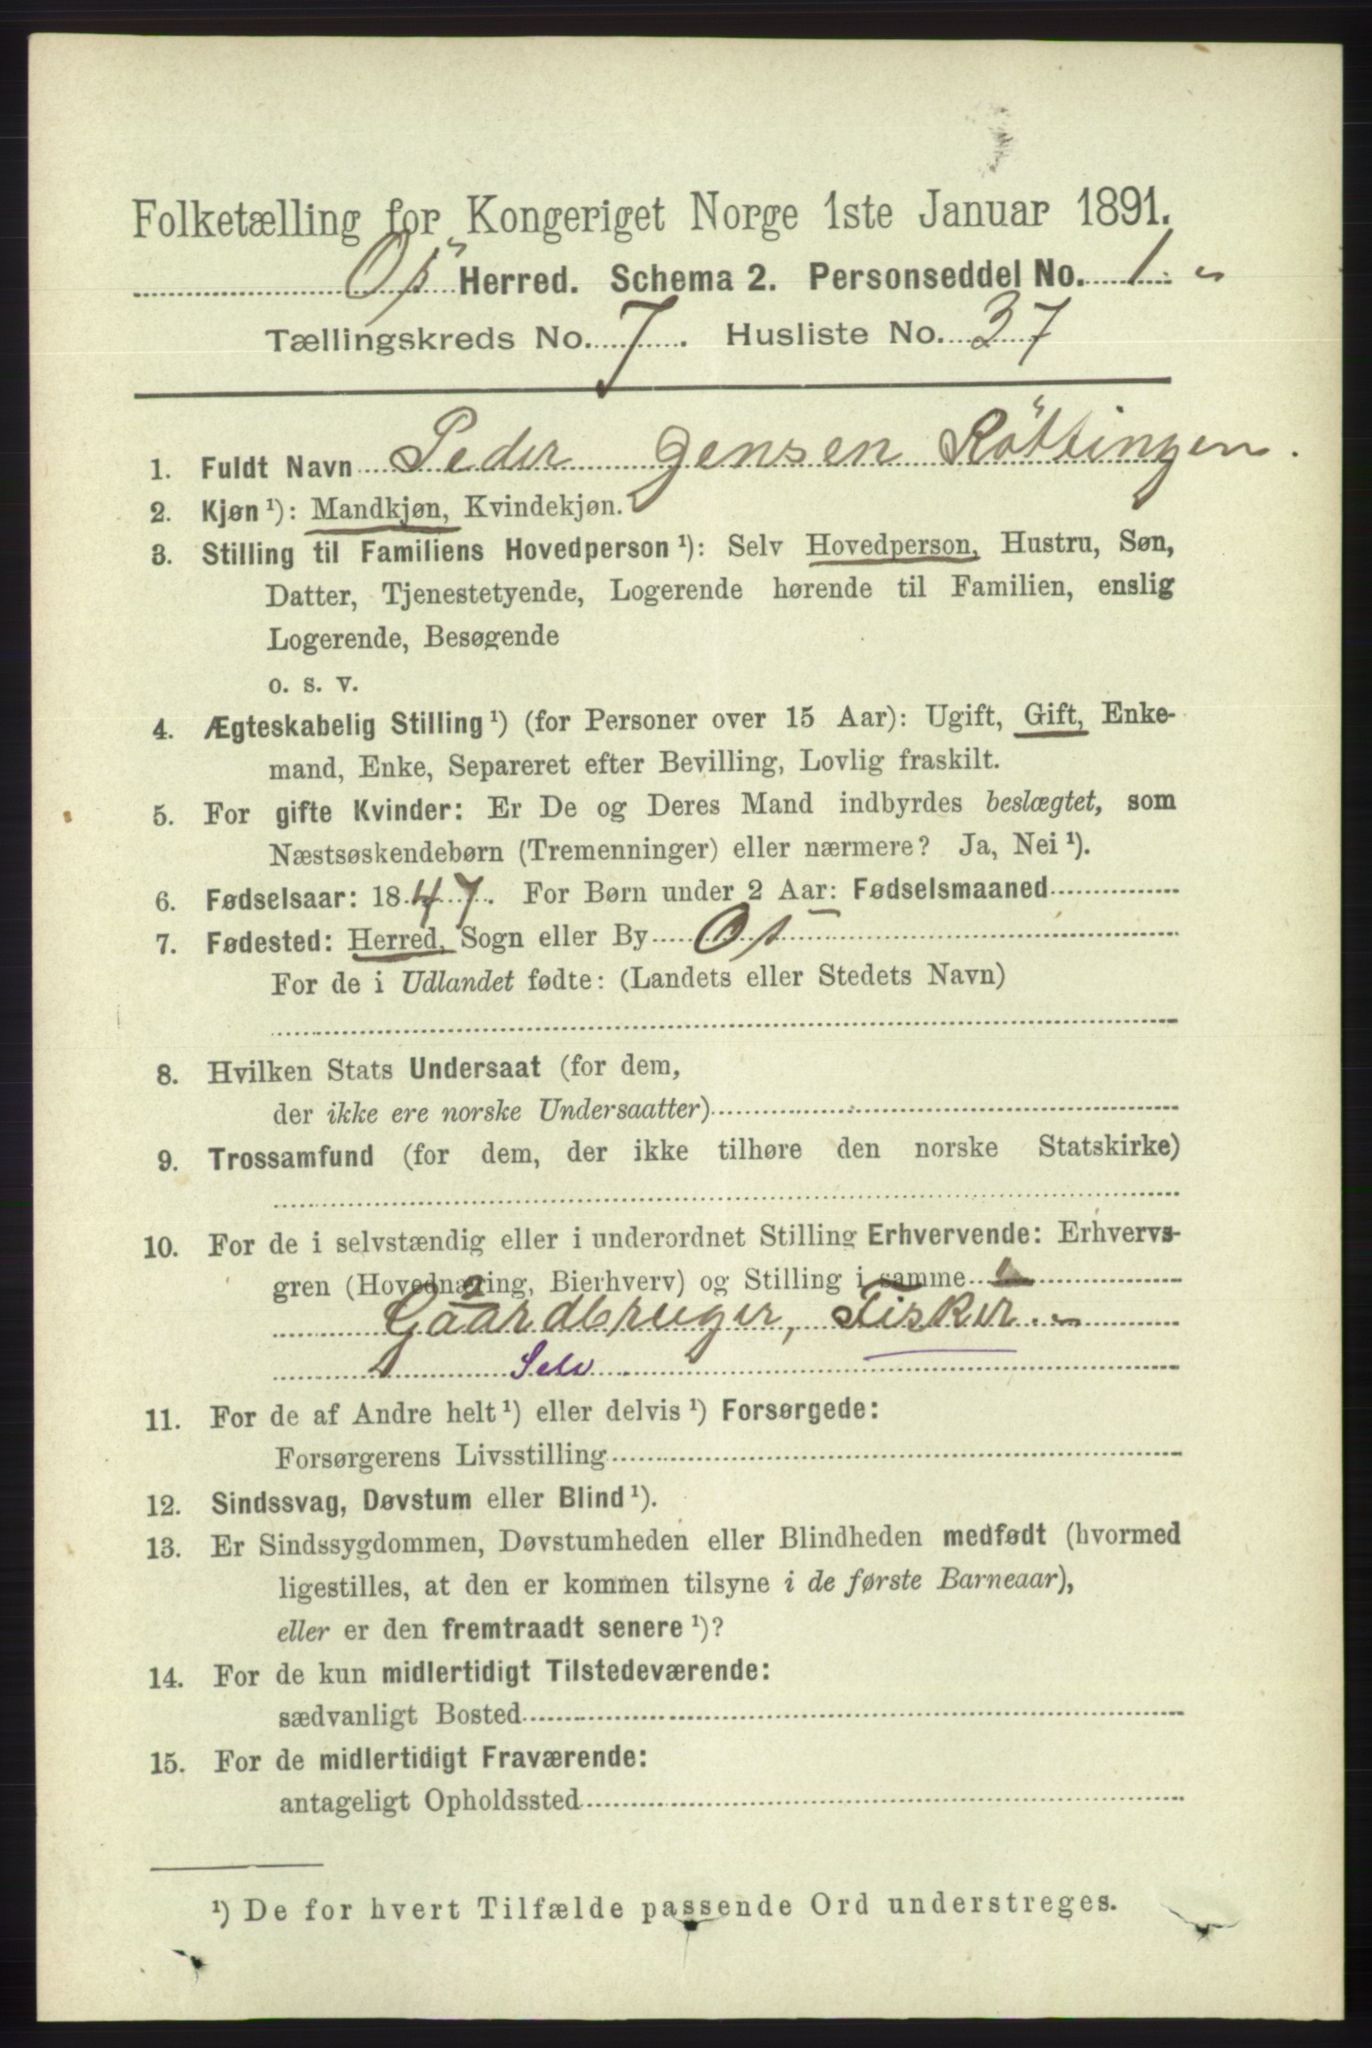 Folketælling for Kongeriget Norge 1ste Januar 1891.
Os Herred. Schema 2. Personseddel No. 1.
Tællingskreds No. 7. Husliste No. 37
1. Fuldt Navn Peder Jensen Röttingen.
2. Kjøn ¹): Mandkjøn, Kvindekjøn.
3. Stilling til Familiens Hovedperson ¹): Selv Hovedperson, Hustru, Søn,
Datter, Tjenestetyende, Logerende hørende til Familien, enslig
Logerende, Besøgende
o. s. v.
4. Ægteskabelig Stilling ¹) (for Personer over 15 Aar): Ugift, Gift, Enke-
mand, Enke, Separeret efter Bevilling, Lovlig fraskilt.
5. For gifte Kvinder: Er De og Deres Mand indbyrdes beslægtet, som
Næstsøskendebørn (Tremenninger) eller nærmere? Ja, Nei ¹).
6. Fødselsaar: 1847. For Børn under 2 Aar: Fødselsmaaned
7. Fødested: Herred, Sogn eller By Os
For de i Udlandet fødte: (Landets eller Stedets Navn)
8. Hvilken Stats Undersaat (for dem,
der ikke ere norske Undersaatter)
9. Trossamfund (for dem, der ikke tilhøre den norske Statskirke)
10. For de i selvstændig eller i underordnet Stilling Erhvervende: Erhvervs-
gren (Hovednæring, Bierhverv) og Stilling i samme
Gaardbruger, Fisker.
Selv.
11. For de af Andre helt ¹) eller delvis ¹) Forsørgede:
Forsørgerens Livsstilling
12. Sindssvag, Døvstum eller Blind ¹).
13. Er Sindssygdommen, Døvstumheden eller Blindheden medfødt (hvormed
ligestilles, at den er kommen tilsyne i de første Barneaar),
eller er den fremtraadt senere ¹)?
14. For de kun midlertidigt Tilstedeværende:
sædvanligt Bosted
15. For de midlertidigt Fraværende:
antageligt Opholdssted
¹) De for hvert Tilfælde passende Ord understreges.